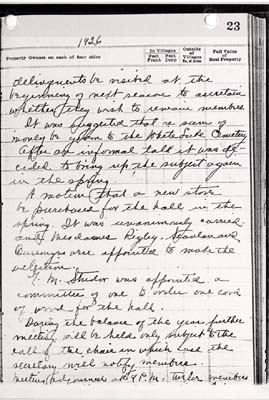 23
1926
Property Owners on each of four sides
In Villages
Feet Front
Feet Deep
Outside of Villages
No. Acres
Full Value of Real Property
delinquents be visited at the
beginning of next season to ascertain
whether they wish to remain members.
It was suggested that a sum of
money be given to the White Lake Cemetery
After an informal talk it was de-
cided to bring up the subject again
in the spring.
A motion that a new stove
be purchased for the hall in the
spring. It was unanimously carried
and Mesdames Rigby,
are appointed to make the
selection.
M. was appointed a
committee of one to order one cord
of wood for the hall.
During the balance of the year further
meetings will be held only subject to the
call of the chair in which case the
secretary will notify members.
Meeting adjourned at 9 P.M. Twelve members